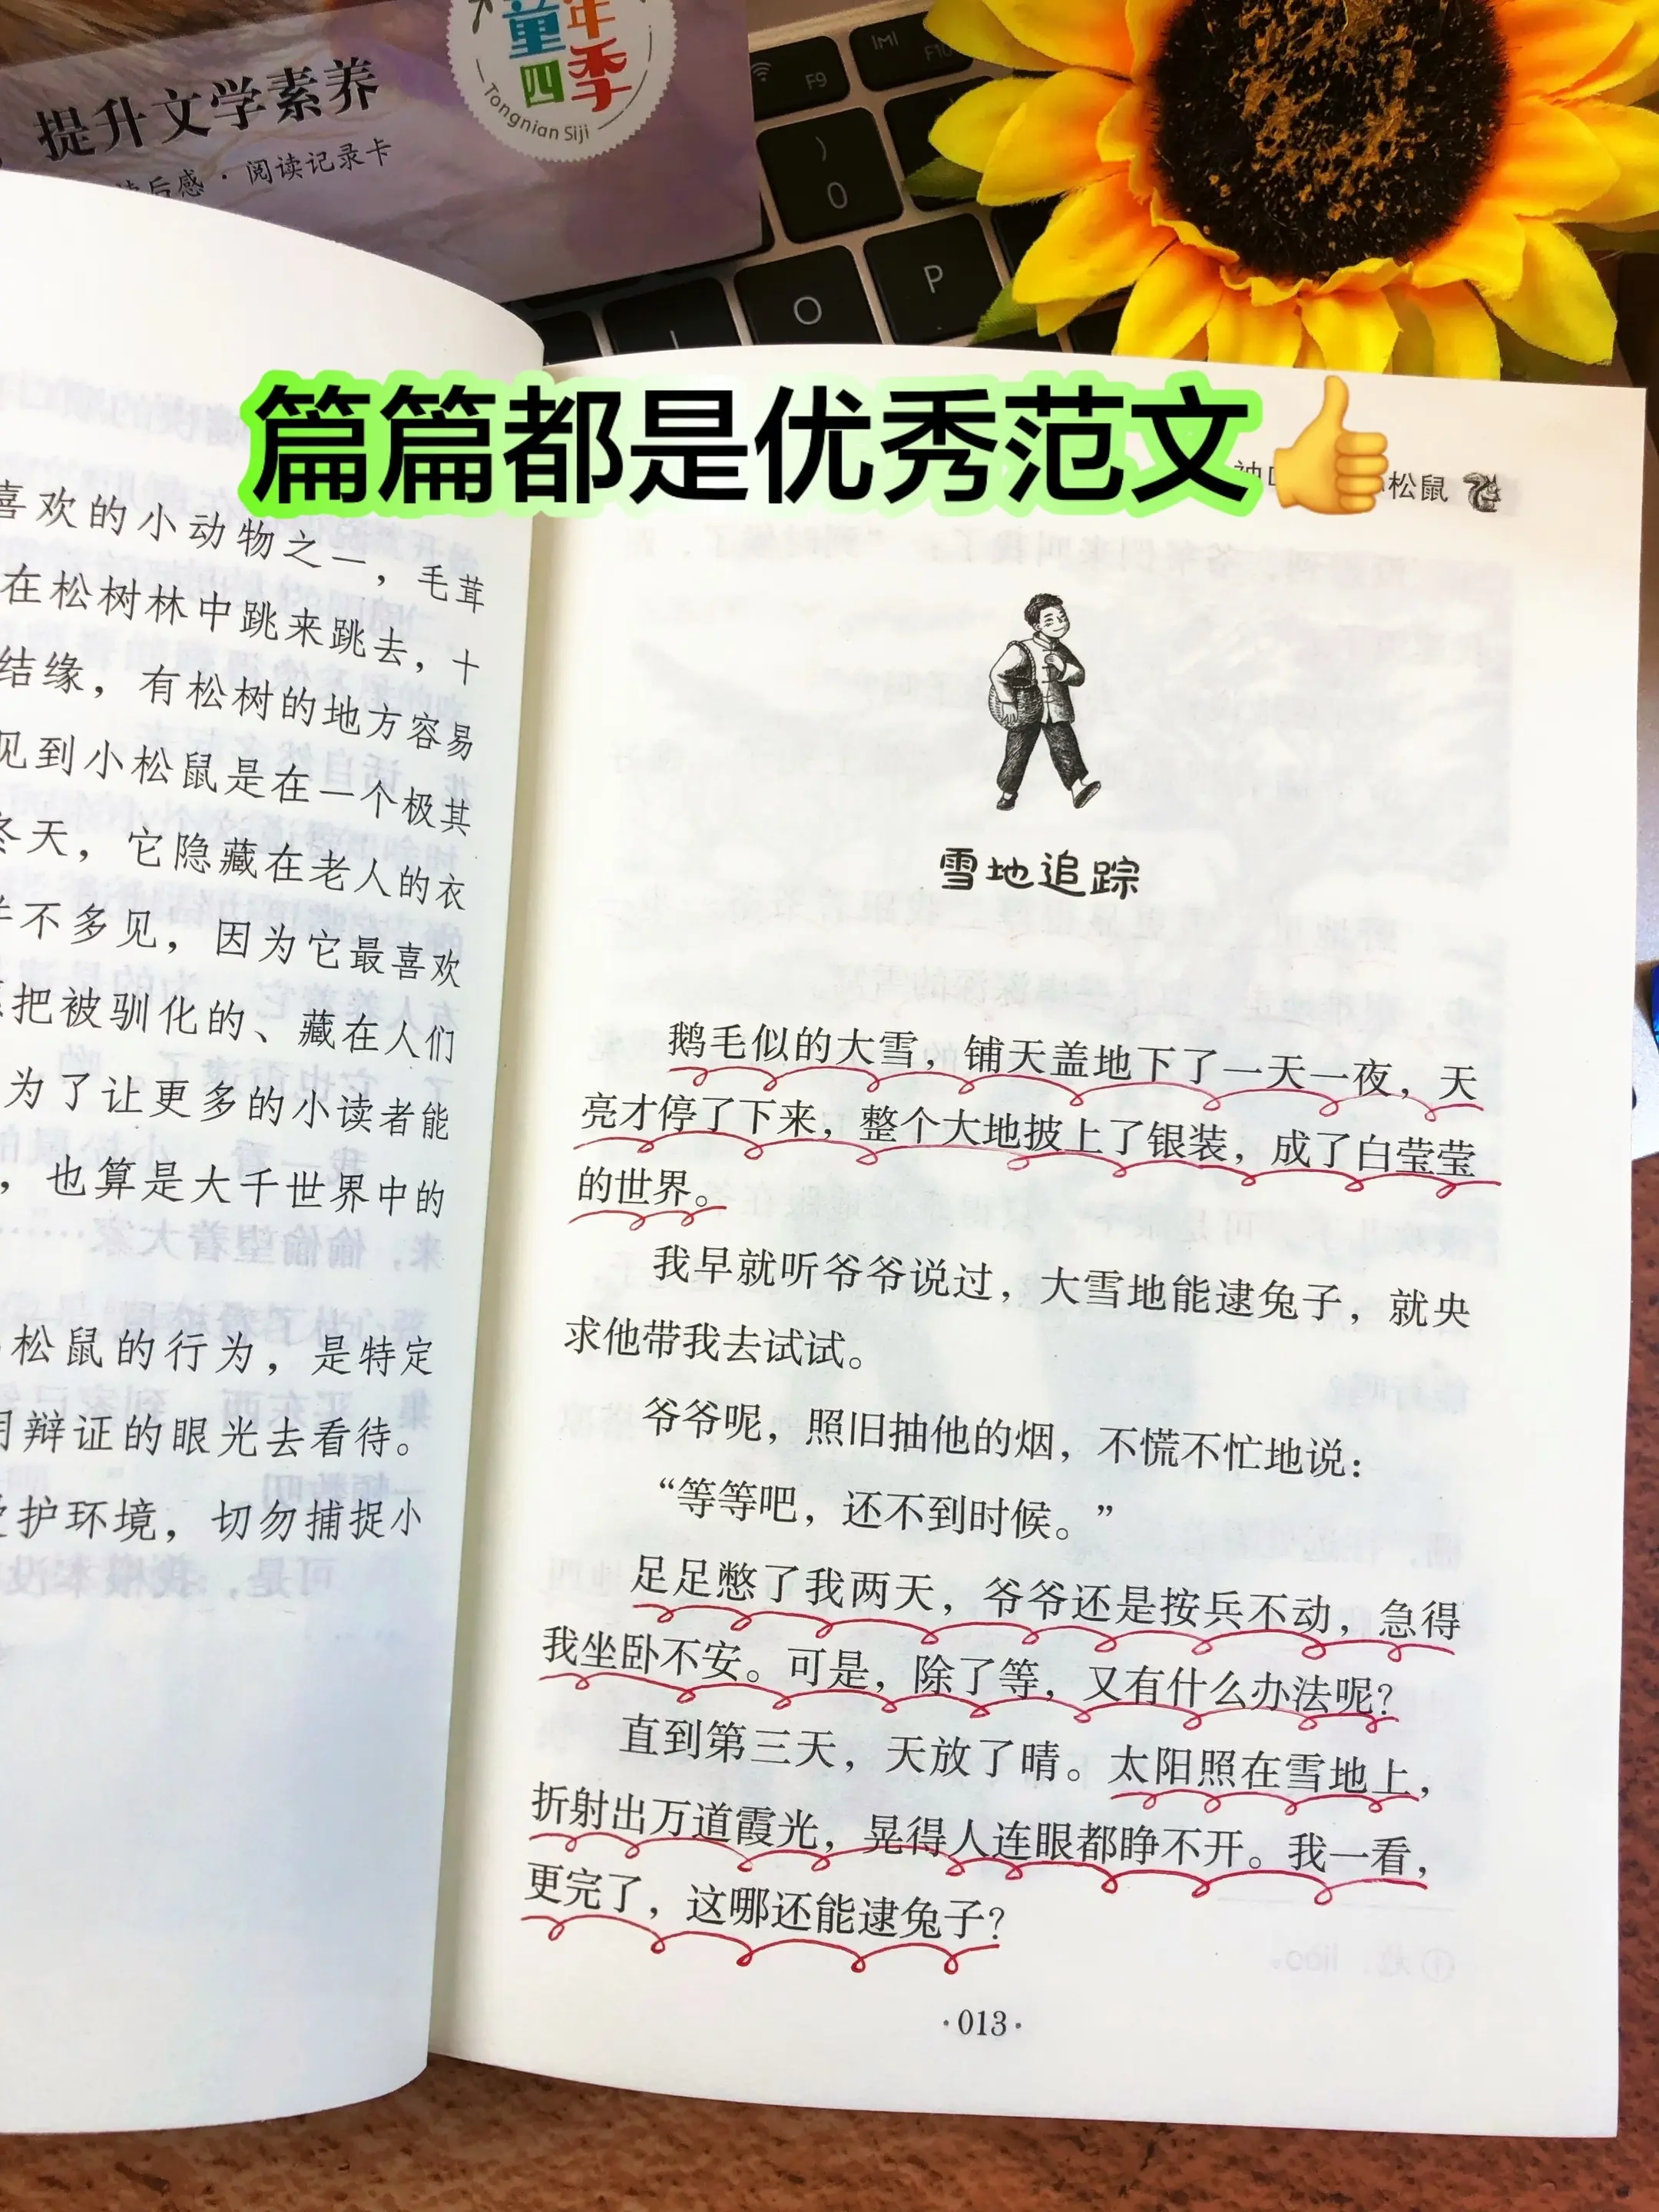 童年
四季
Tongnian Siji
提升文学素养
读后感·阅读记录卡
F9
F10
)
0
O
P
篇篇都是优秀范文👍
松鼠
喜欢的小动物之一，毛茸
在松树林中跳来跳去，十
结缘，有松树的地方容易
见到小松鼠是在一个极其
冬天，它隐藏在老人的衣
并不多见，因为它最喜欢
把被驯化的、藏在人们
为了让更多的小读者能
，也算是大千世界中的
松鼠的行为，是特定
用辩证的眼光去看待。
爱护环境，切勿捕捉小
雪地追踪
鹅毛似的大雪，铺天盖地下了一天一夜，天
亮才停了下来，整个大地披上了银装，成了白莹莹
的世界。
我早就听爷爷说过，大雪地能逮兔子，就央
求他带我去试试。
爷爷呢，照旧抽他的烟，不慌不忙地说：
“等等吧，还不到时候。”
足足憋了我两天，爷爷还是按兵不动，急得
我坐卧不安。可是，除了等，又有什么办法呢？
直到第三天，天放了晴。太阳照在雪地上，
折射出万道霞光，晃得人连眼都睁不开。我一看，
更完了，这哪还能逮兔子？
·013·